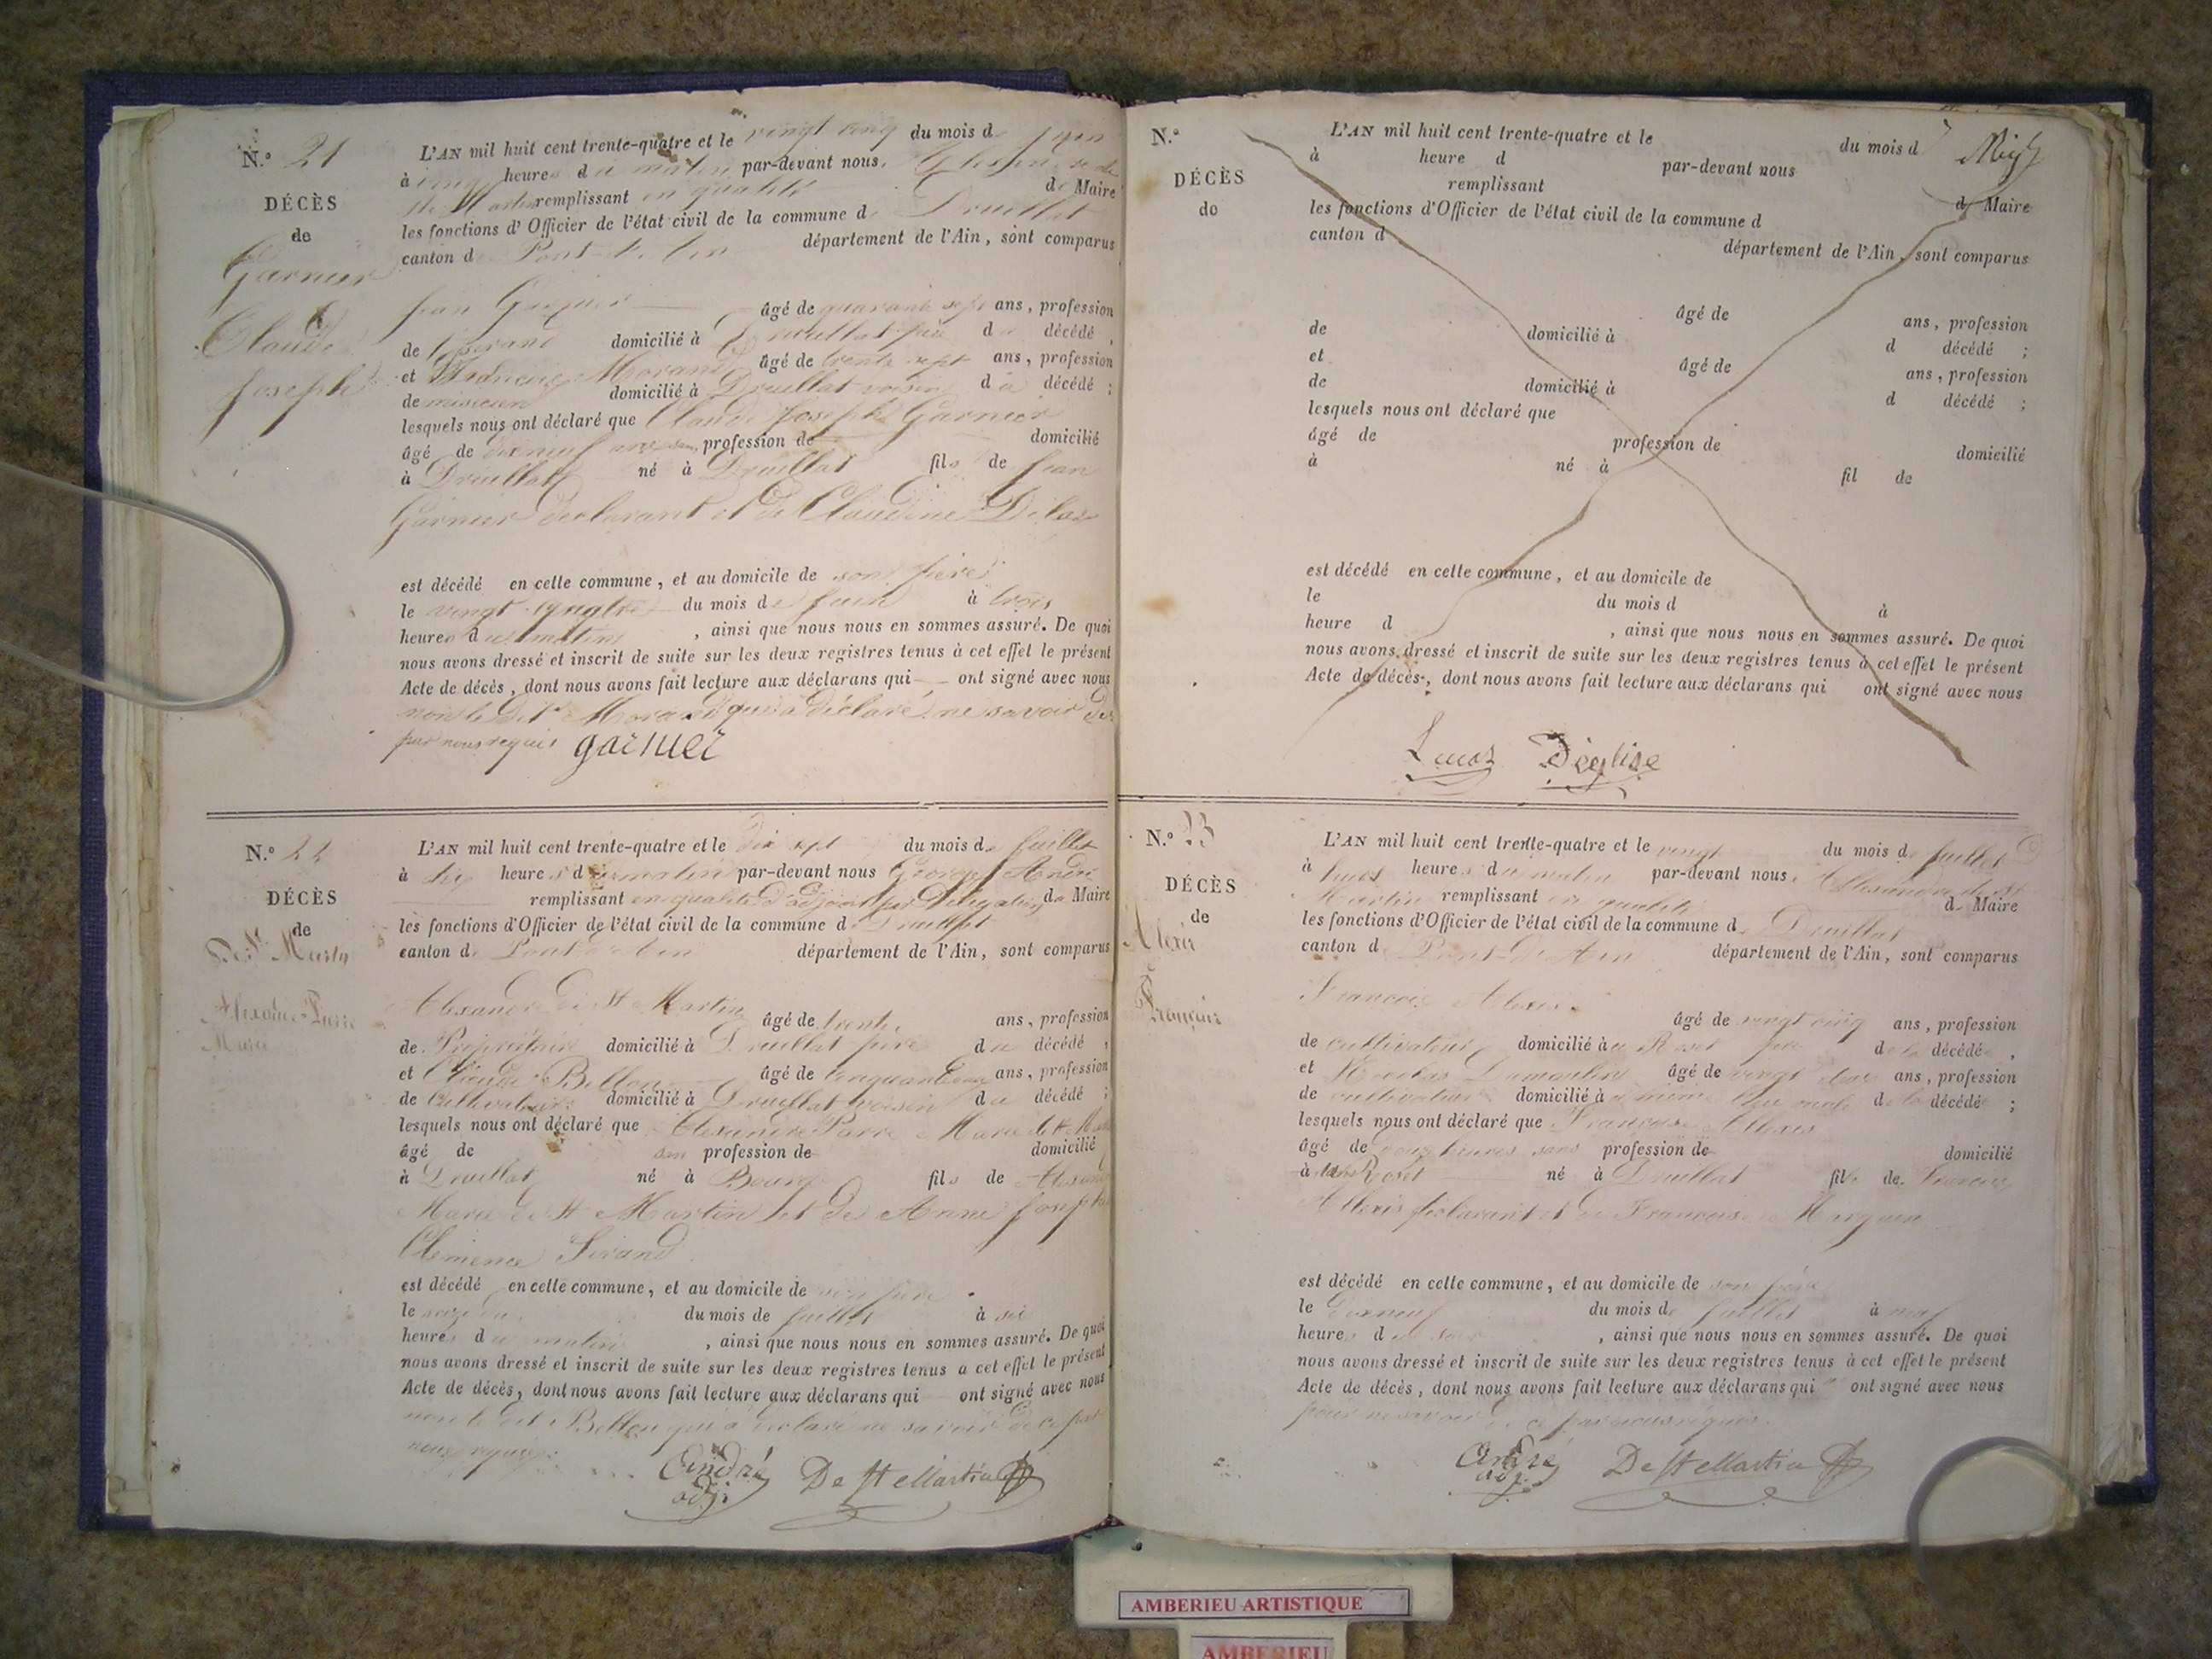 N.° 21
DÉCÈS
de
Garnier
Claude
Joseph
L'AN mil huit cent trente-quatre et le vingt cinq du mois de juin
à cinq heures du matin par-devant nous,
St Martin remplissant en qualité de Maire
les fonctions d'Officier de l'état civil de la commune de Druillat
canton de Pont d'Ain département de l'Ain, sont comparus
Jean âgé de quarante sept ans, profession
de domicilié à Druillat père du décédé,
et Morand âgé de trente sept ans, profession
de domicilié à Druillat voisin du décédé;
lesquels nous ont déclaré que Claude Joseph Garnier
âgé de ans sans profession de domicilié
à Druillat né à Druillat fils de Jean
Garnier déclarant et de Claudine
est décédé en cette commune, et au domicile de son père
le vingt quatre du mois de Juin à trois
heures du matin, ainsi que nous nous en sommes assuré. De quoi
nous avons dressé et inscrit de suite sur les deux registres tenus à cet effet le présent
Acte de décès, dont nous avons fait lecture aux déclarans qui ont signé avec nous
non le dit Morand qui a déclaré ne savoir de
par nous requis garnier
N.° 22
DÉCÈS
de
De St Martin
Alexandre Pierre
Marie
L'AN mil huit cent trente-quatre et le dix sept du mois de Juillet
à heures du matin par-devant nous André
remplissant en qualité d'adjoint par délégation de Maire
les fonctions d'Officier de l'état civil de la commune de Druillat
canton de Pont d'Ain département de l'Ain, sont comparus
Alexandre de St Martin âgé de trente ans, profession
de Propriétaire domicilié à Druillat père du décédé,
et Claude Bellon âgé de ans, profession
de Cultivateur domicilié à Druillat voisin du décédé;
lesquels nous ont déclaré que Alexandre Pierre Marie de St
âgé de sans profession de domicilié
à Druillat né à Bourg fils de
Marie de St Martin et de Anne Josephte
Clemence Sirand
est décédé en cette commune, et au domicile de son père
le seize du mois de Juillet à six
heures du matin, ainsi que nous nous en sommes assuré. De quoi
nous avons dressé et inscrit de suite sur les deux registres tenus a cet effet le présent
Acte de décès, dont nous avons fait lecture aux déclarans qui ont signé avec nous
non le dit Bellon qui a déclaré ne savoir de ce par
nous requis
André De St Martin
adj.
N.°
DÉCÈS
de
L'AN mil huit cent trente-quatre et le du mois d
à heure d par-devant nous
remplissant d Maire
les fonctions d'Officier de l'état civil de la commune d
canton d département de l'Ain, sont comparus
âgé de ans, profession
de domicilié à d décédé;
et âgé de ans, profession
de domicilié à d décédé;
lesquels nous ont déclaré que
âgé de profession de domicilié
à né à fil de
est décédé en cette commune, et au domicile de
le du mois d à
heure d , ainsi que nous nous en sommes assuré. De quoi
nous avons dressé et inscrit de suite sur les deux registres tenus à cet effet le présent
Acte de décès, dont nous avons fait lecture aux déclarans qui ont signé avec nous
N.° 23
DÉCÈS
de
Alexis
Françoise
L'AN mil huit cent trente-quatre et le vingt du mois de Juillet
à heures du matin par-devant nous, Alexandre de St
Martin remplissant en qualité de Maire
les fonctions d'Officier de l'état civil de la commune de Druillat
canton de Pont-d'Ain département de l'Ain, sont comparus
François Alexis âgé de vingt cinq ans, profession
de cultivateur domicilié à père de la décédée,
et Nicolas Dumoulin âgé de vingt ans, profession
de cultivateur domicilié à même lieu de la décédée;
lesquels nous ont déclaré que Françoise Allexis
âgé de heures sans profession de domicilié
à né à Druillat fille de François
Allexis déclarant et de Françoise
est décédé en cette commune, et au domicile de son père
le dixneuf du mois de Juillet à neuf
heures du soir, ainsi que nous nous en sommes assuré. De quoi
nous avons dressé et inscrit de suite sur les deux registres tenus à cet effet le présent
Acte de décès, dont nous avons fait lecture aux déclarans qui ont signé avec nous
pour ne savoir de ce par nous requis.
André De St Martin
adj.
AMBERIEU ARTISTIQUE
AMBERIEU